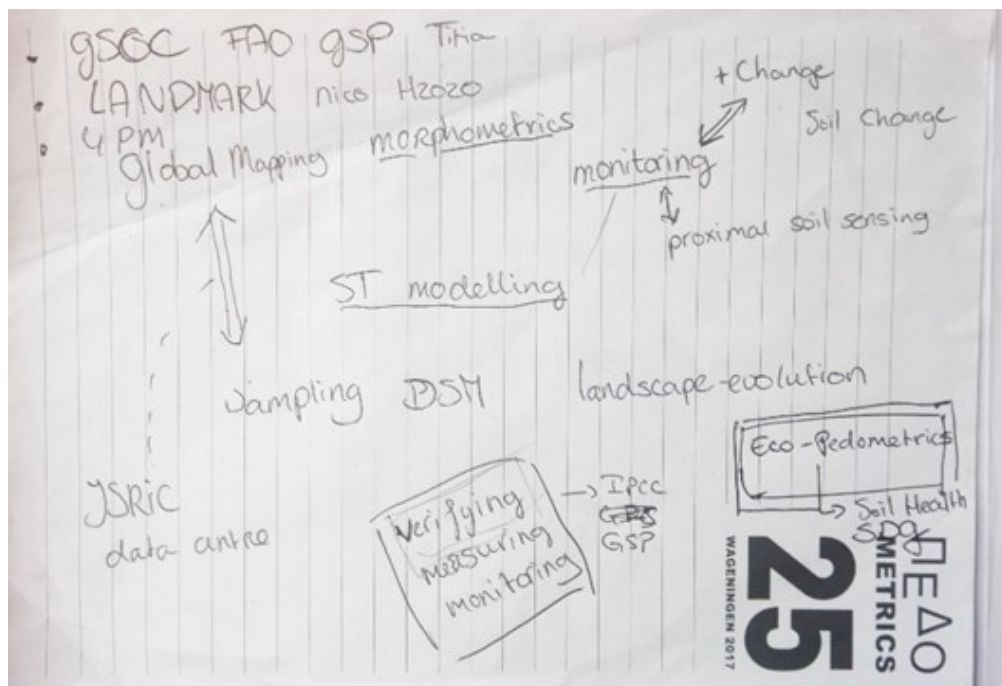 gSOC FAO GSP Titia
• LANDMARK nico H2020
• 4 PM
Global Mapping morphometrics
+ Change
Soil Change
monitoring
proximal soil sensing
ST modelling
Sampling DSM landscape-evolution
Eco-Pedometrics
Soil Health
SDG
ISRIC
data centre
verifying
measuring
monitoring
→ IPCC
GSP
ΠΕΔΟ
METRICS
25
WAGENINGEN 2017